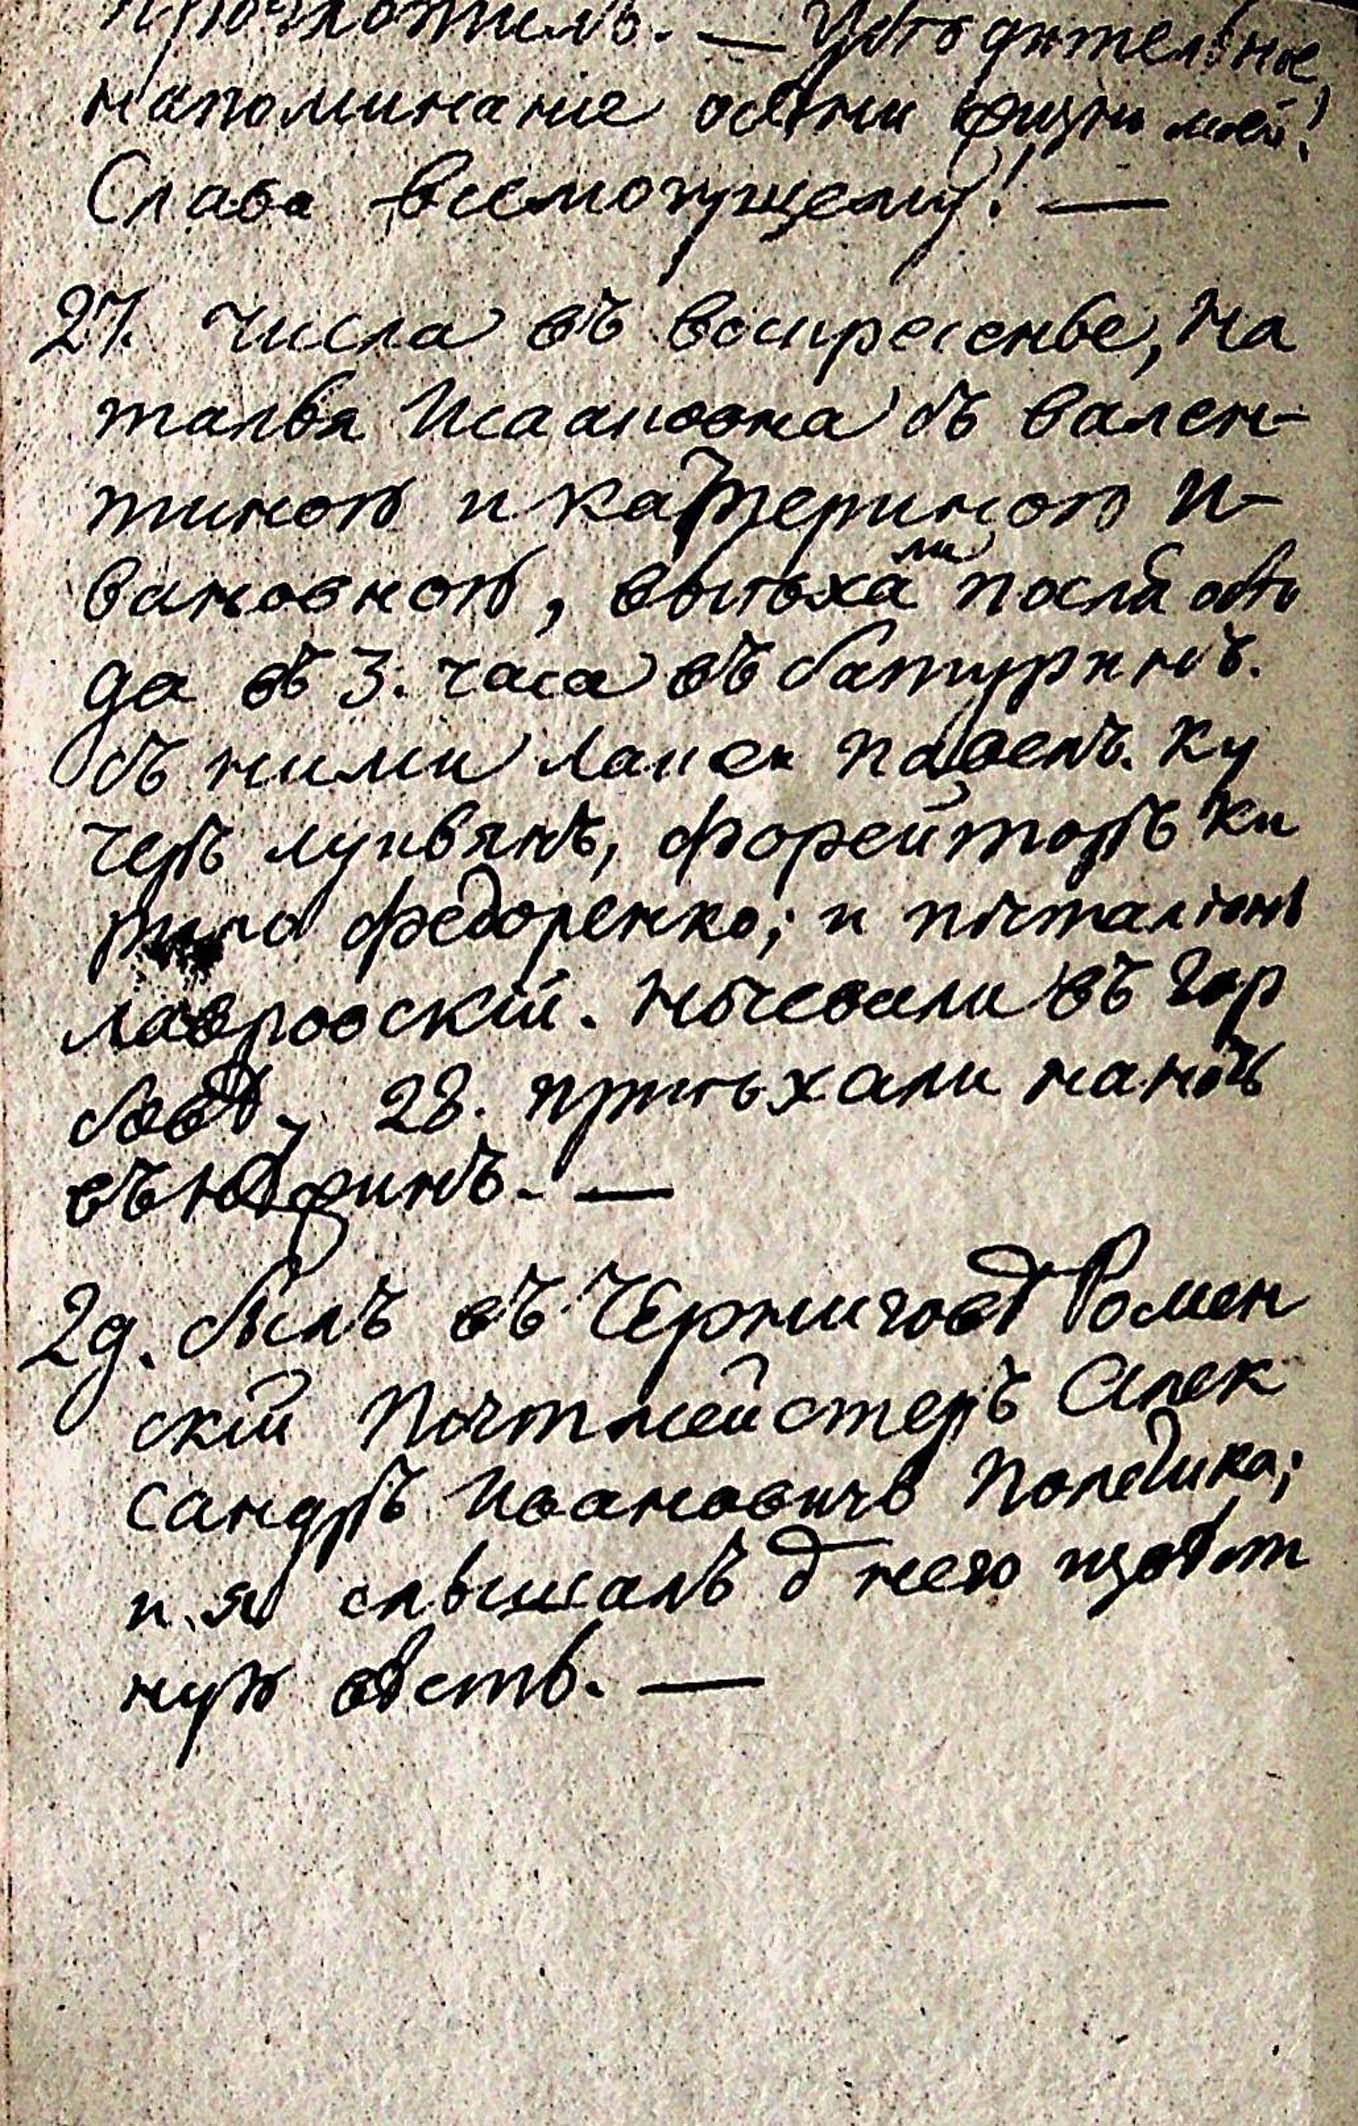 Убѣдительное
напоминание осени жизни моей!
Слава всемогущему! —
27. числа въ воскресенье, На
талья Исааковна съ Вален-
тиною и Катериною И-
вановною, выѣхали послѣ обѣ
да въ 3. часа въ батуринъ.
Съ ними лакей павелъ. Ку
черъ лукьянъ, форейторъ Ки
рило Федоренко; и почталіонъ
лавровскій. Ночевали въ Гор
бовѣ, 28. приѣхали на ночь
въ
29. былъ въ Черниговѣ Ромен
скій Почтмейстеръ Алек
сандръ Ивановичь Полетика;
и я слышалъ о него
ную вѣсть. —